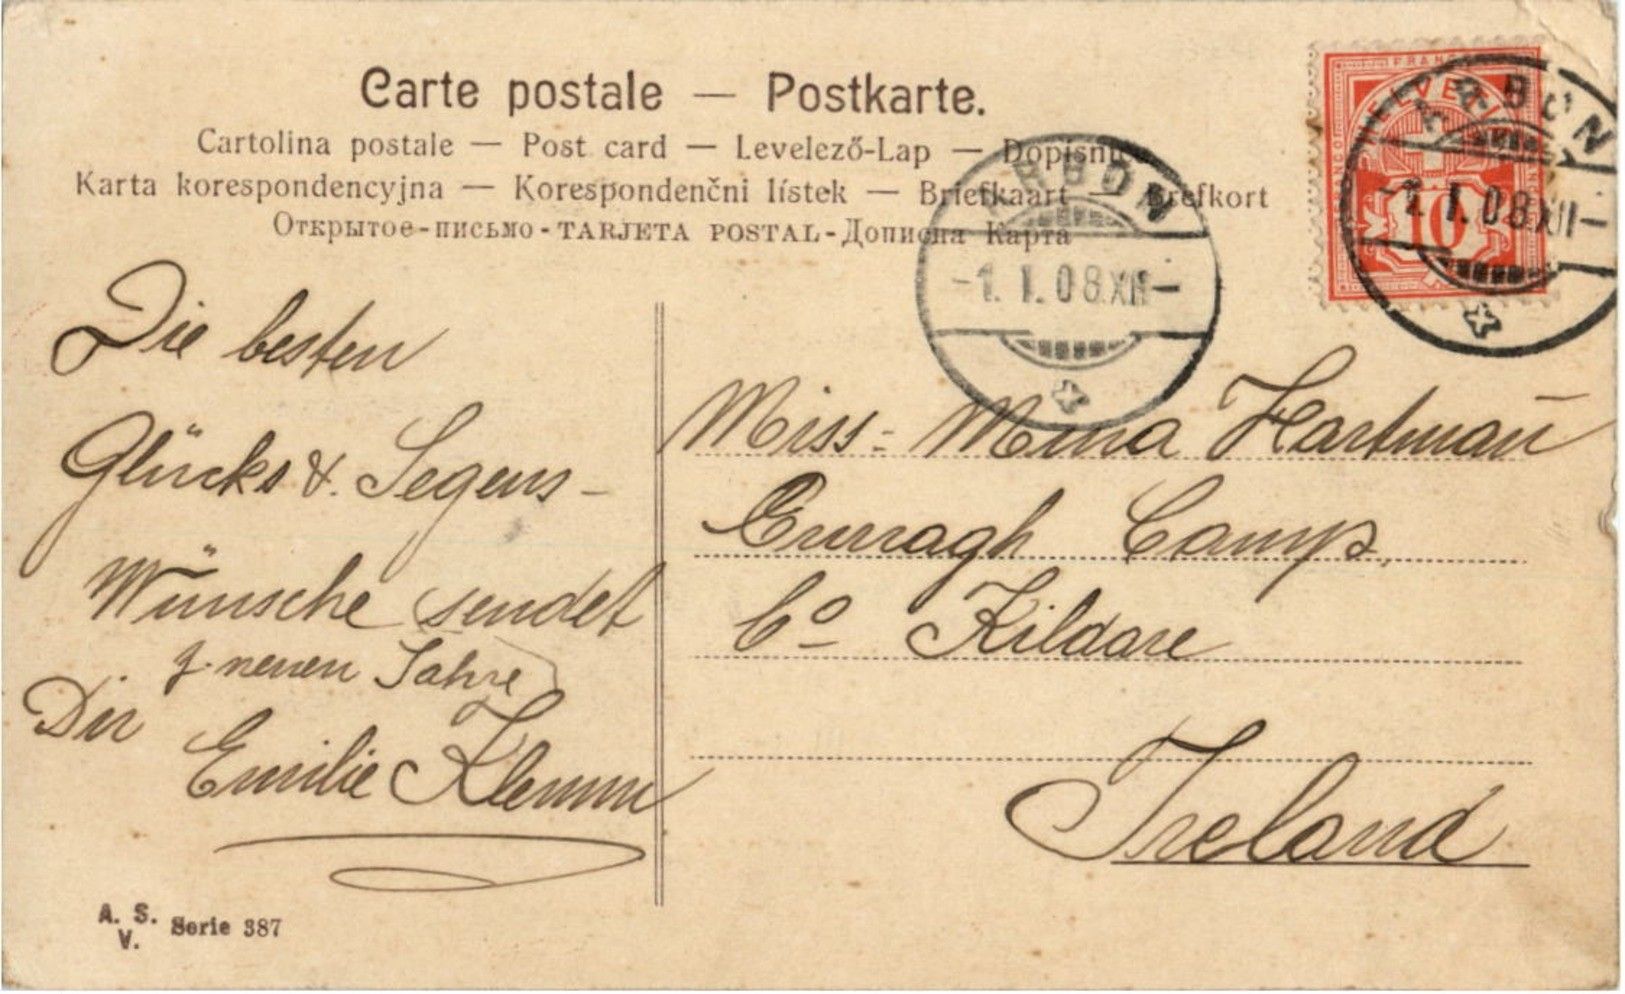 Carte postale — Postkarte.
Cartolina postale — Post card — Levelező-Lap — Dopisnice
Karta korespondencyjna — Korespondenční lístek — Briefkaart — Brefkort
Открытое-письмо - TARJETA POSTAL - Дописна Карта
HELVETIA
10
ARBON
-1. I. 08.XII-
ARBON
-1. I. 08.XII-
Die besten
Glücks & Segens-
Wünsche sendet
z. neuen Jahre
Dir
Emilie Klemm
Miss- Mina Hartman̄
Curragh Camp,
Co Kildare
Ireland
A. S. V. Serie 387